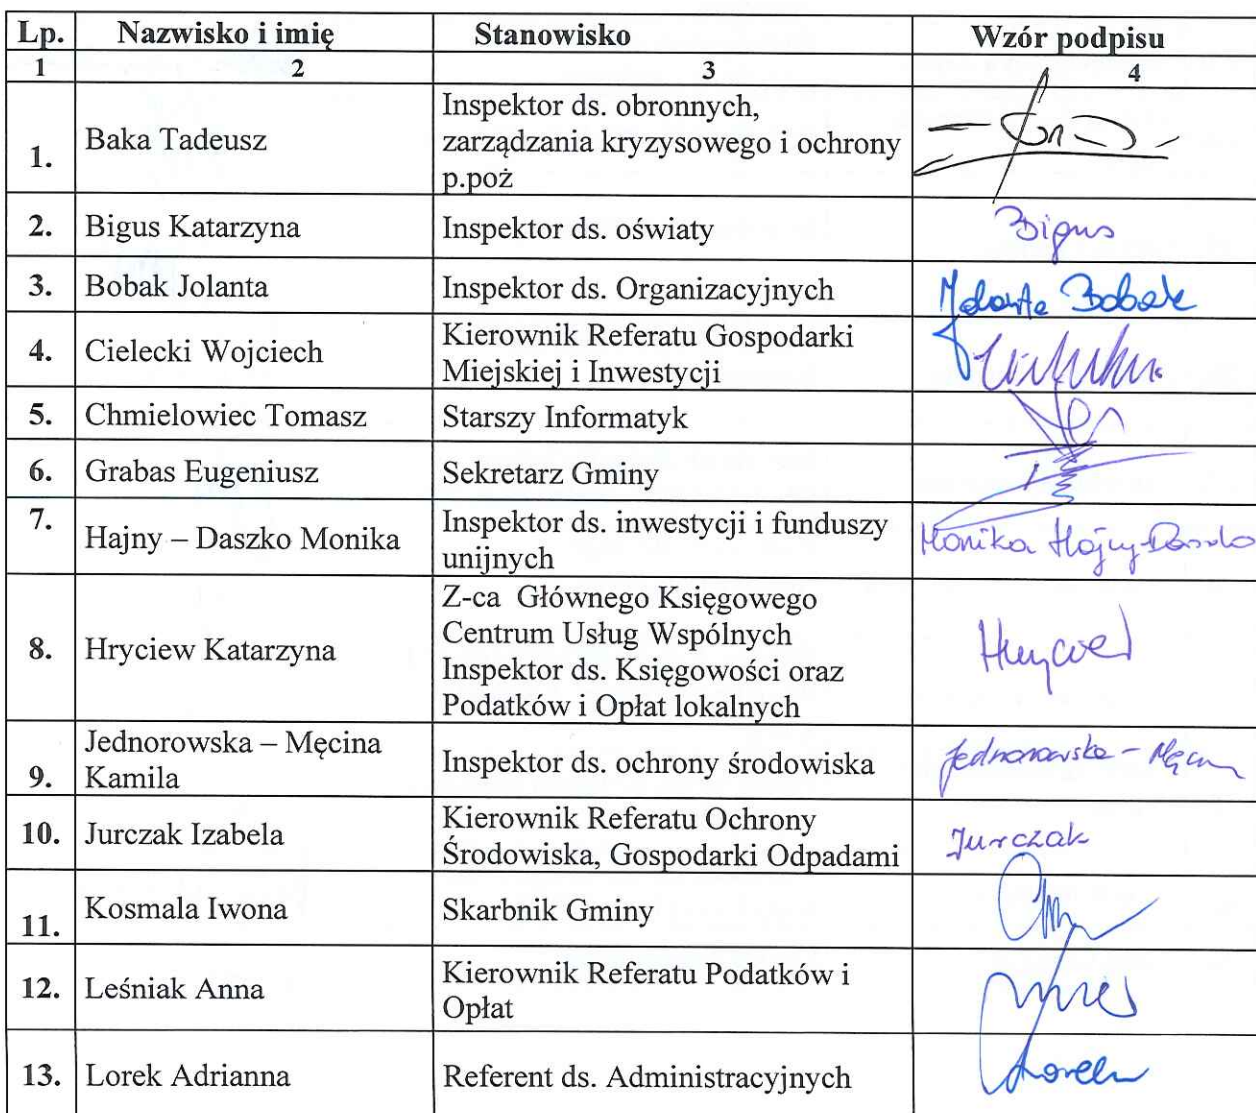 Lp. Nazwisko i imię Stanowisko Wzór podpisu
1 2 3 4
1. Baka Tadeusz Inspektor ds. obronnych,
zarządzania kryzysowego i ochrony
p.poż
2. Bigus Katarzyna Inspektor ds. oświaty Bigus
3. Bobak Jolanta Inspektor ds. Organizacyjnych Jolanta Bobak
4. Cielecki Wojciech Kierownik Referatu Gospodarki
Miejskiej i Inwestycji
5. Chmielowiec Tomasz Starszy Informatyk
6. Grabas Eugeniusz Sekretarz Gminy
7. Hajny – Daszko Monika Inspektor ds. inwestycji i funduszy
unijnych Monika Hajny-Daszko
8. Hryciew Katarzyna Z-ca Głównego Księgowego
Centrum Usług Wspólnych
Inspektor ds. Księgowości oraz
Podatków i Opłat lokalnych Hryciew
Jednorowska – Męcina
9. Kamila Inspektor ds. ochrony środowiska Jednorowska -
10. Jurczak Izabela Kierownik Referatu Ochrony
Środowiska, Gospodarki Odpadami Jurczak
11. Kosmala Iwona Skarbnik Gminy
12. Leśniak Anna Kierownik Referatu Podatków i
Opłat
13. Lorek Adrianna Referent ds. Administracyjnych Lorek